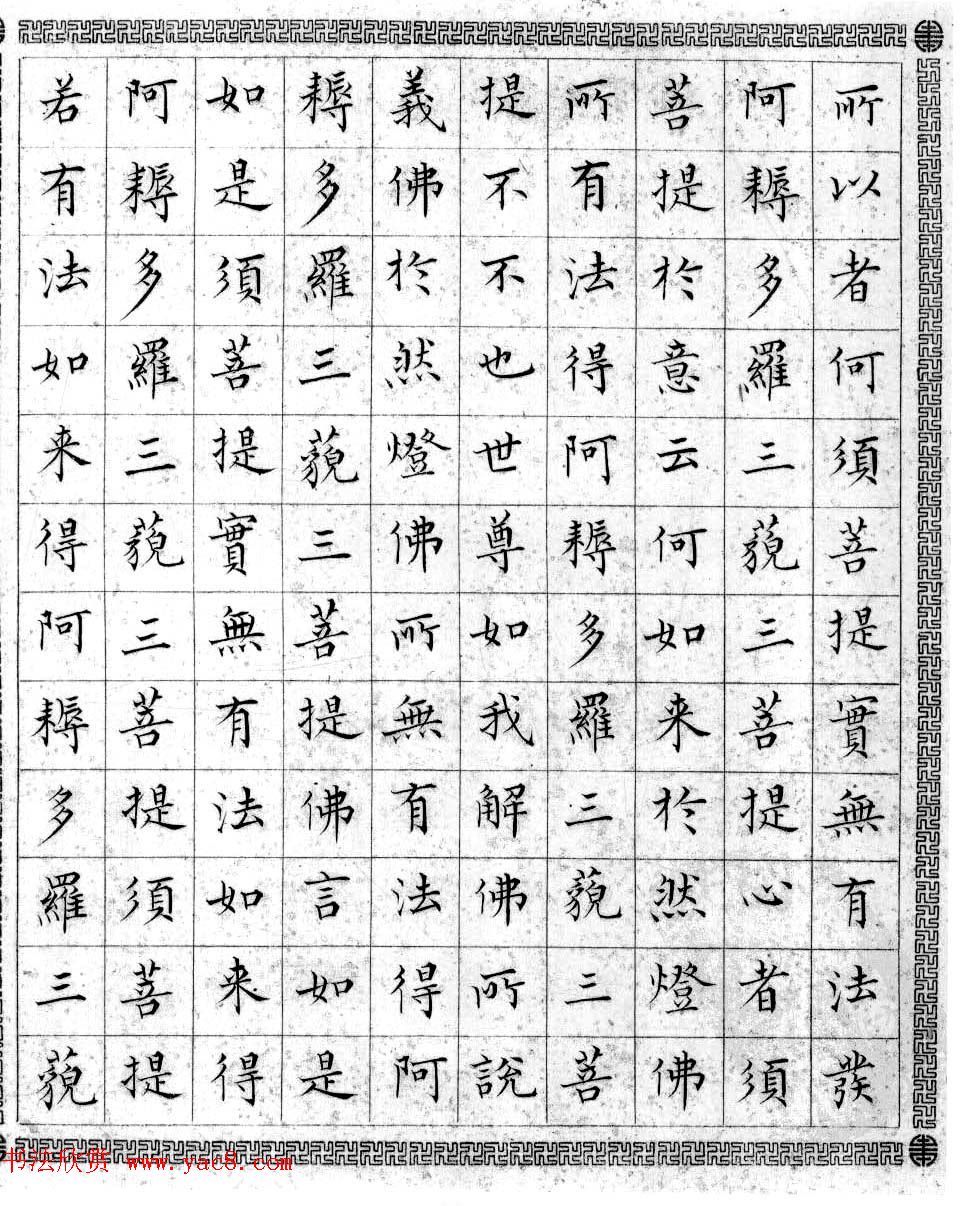 所以者何須菩提實無有法發
阿耨多羅三藐三菩提心者須
菩提於意云何如来於然燈佛
所有法得阿耨多羅三藐三菩
提不不也世尊如我解佛所說
義佛於然燈佛所無有法得阿
耨多羅三藐三菩提佛言如是
如是須菩提實無有法如来得
阿耨多羅三藐三菩提須菩提
若有法如来得阿耨多羅三藐
书法欣赏 www.yac8.com